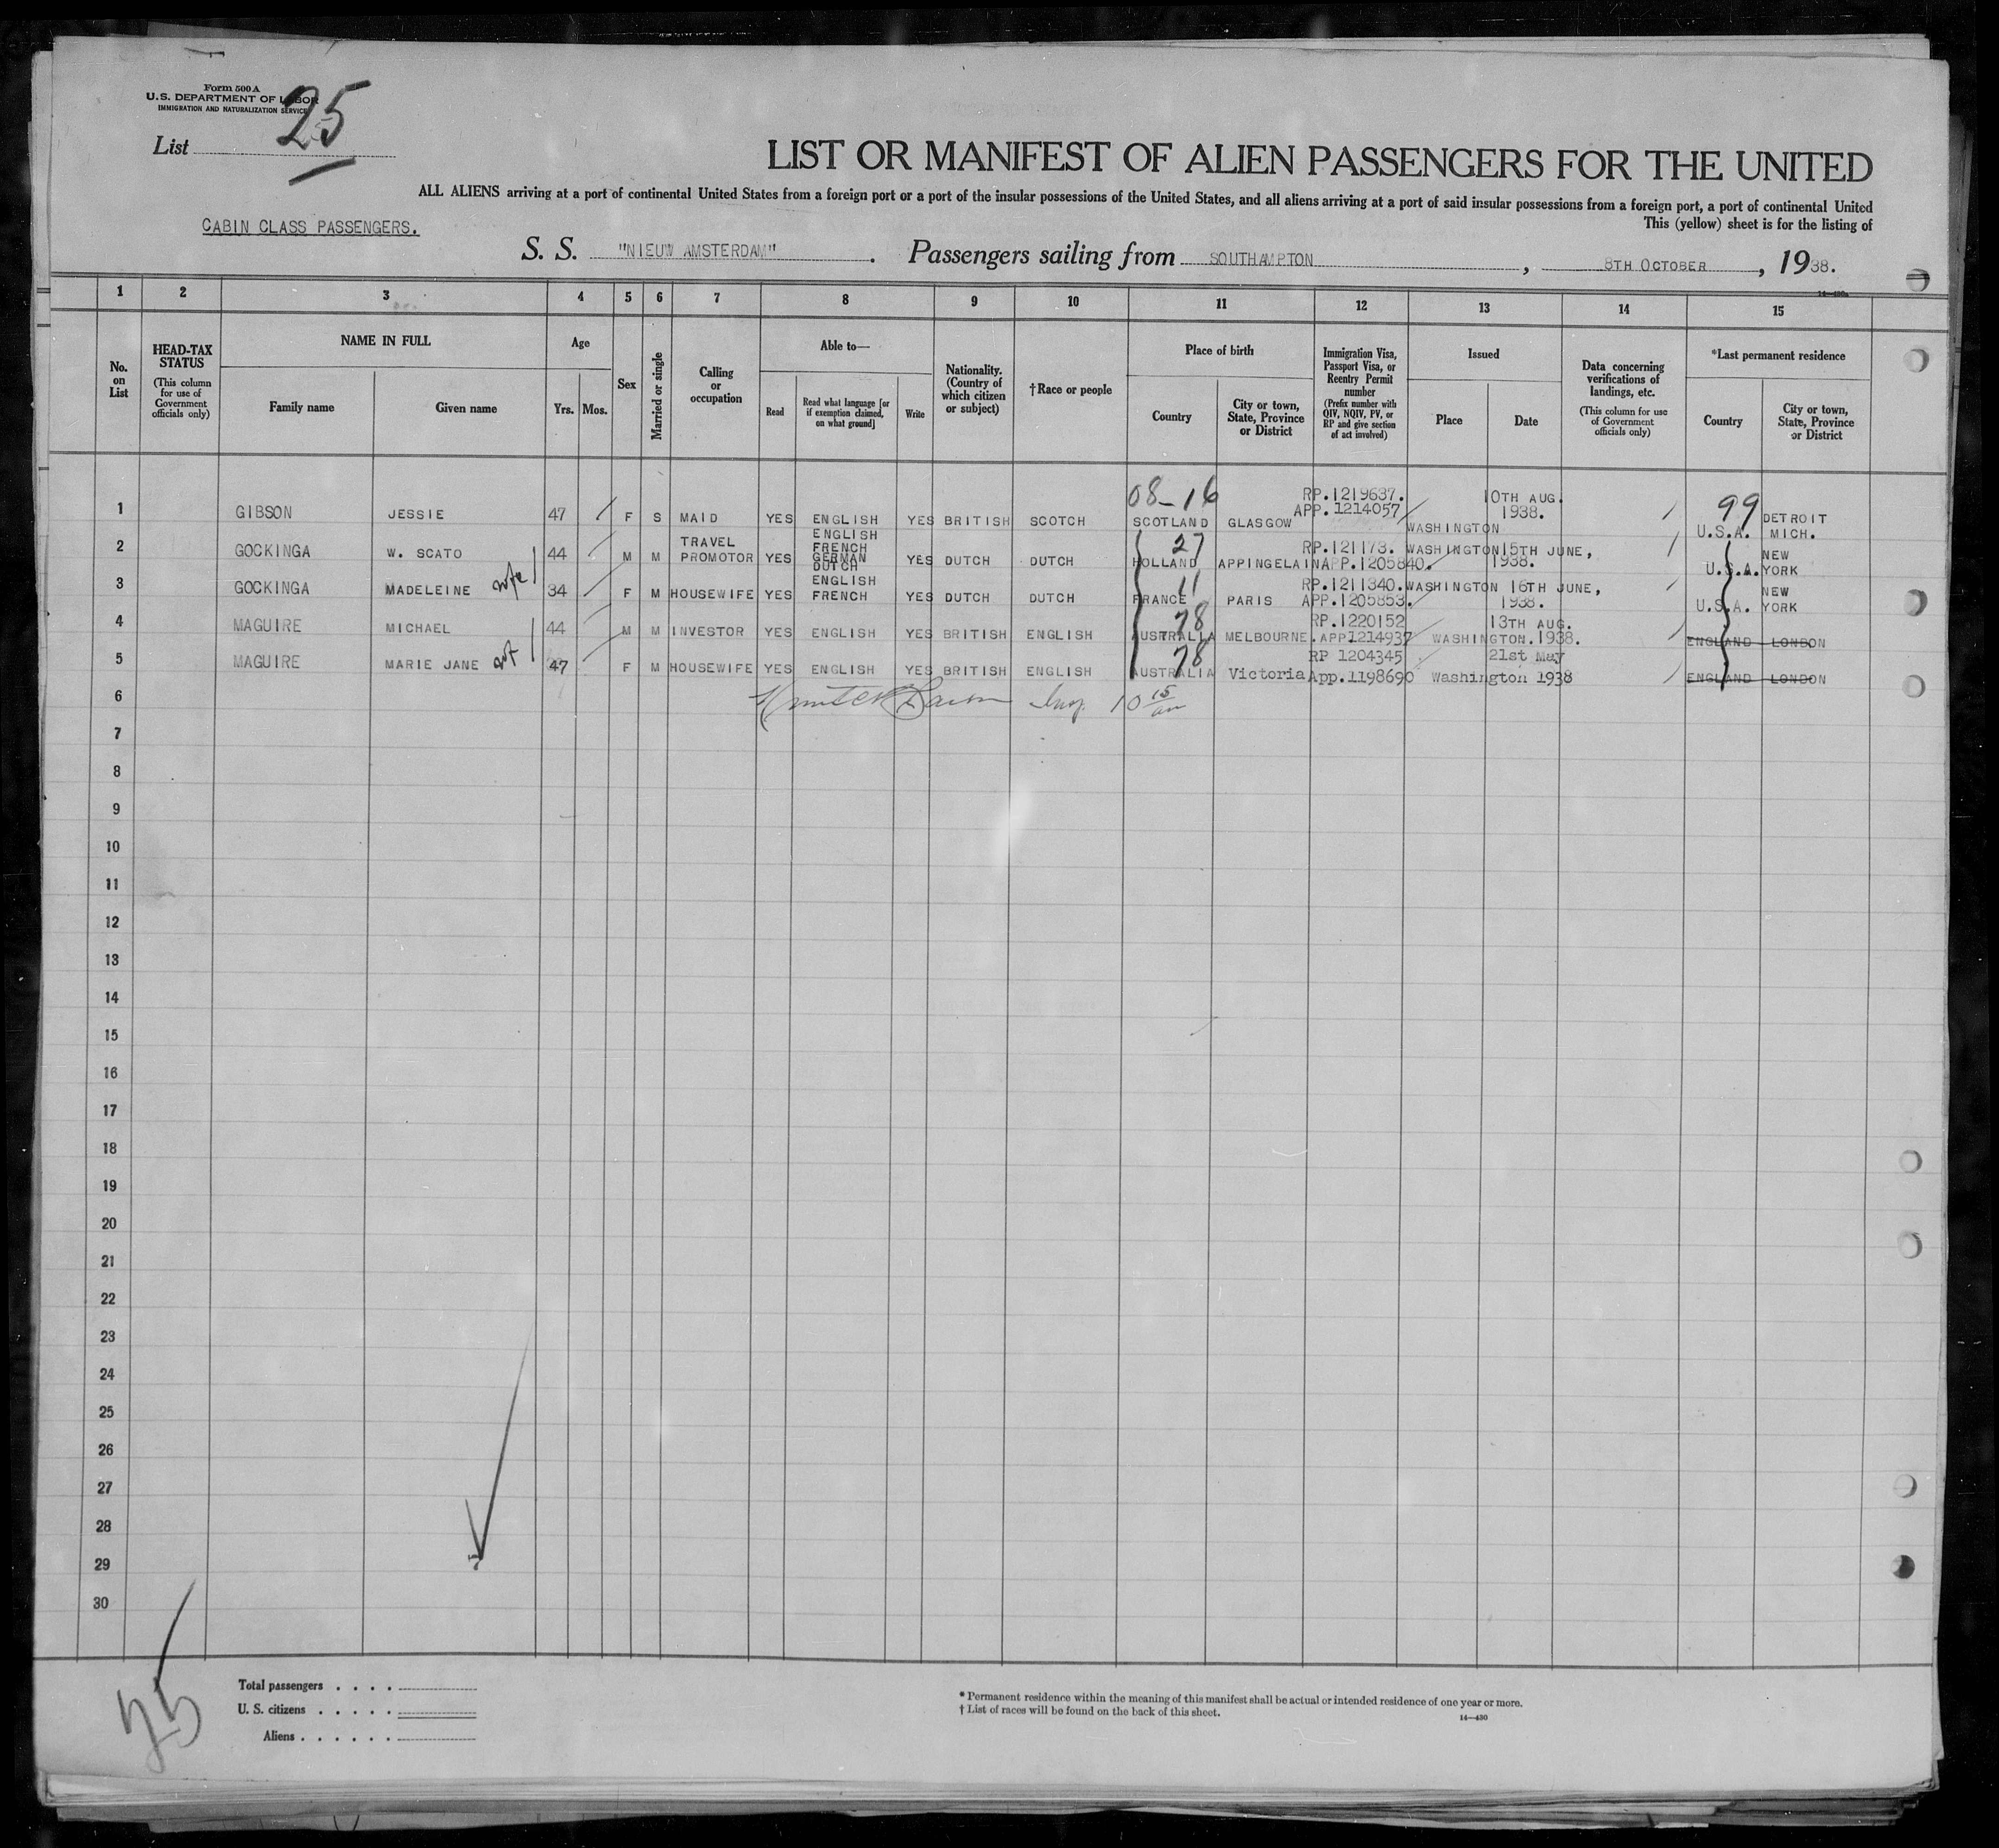 Form 500 A
U.S. DEPARTMENT OF LABOR
IMMIGRATION AND NATURALIZATION SERVICE
List 25
LIST OR MANIFEST OF ALIEN PASSENGERS FOR THE UNITED
ALL ALIENS arriving at a port of continental United States from a foreign port or a port of the insular possessions of the United States, and all aliens arriving at a port of said insular possessions from a foreign port, a port of continental United
This (yellow) sheet is for the listing of
CABIN CLASS PASSENGERS.
S. S. "NIEUW AMSTERDAM". Passengers sailing from SOUTHAMPTON, 8TH OCTOBER, 1938.
14—430a
1 2 3 4 5 6 7 8 9 10 11 12 13 14 15
No. on List
HEAD-TAX STATUS
(This column for use of Government officials only)
NAME IN FULL
Family name
Given name
Age
Yrs. Mos.
Sex
Married or single
Calling or occupation
Able to—
Read
Read what language [or if exemption claimed, on what ground]
Write
Nationality. (Country of which citizen or subject)
†Race or people
Place of birth
Country
City or town, State, Province or District
Immigration Visa, Passport Visa, or Reentry Permit number
(Prefix number with QIV, NQIV, PV, or RP and give section of act involved)
Issued
Place
Date
Data concerning verifications of landings, etc.
(This column for use of Government officials only)
*Last permanent residence
Country
City or town, State, Province or District
08-16 RP.1219637. 10TH AUG. 99
1 GIBSON JESSIE 47 F S MAID YES ENGLISH YES BRITISH SCOTCH SCOTLAND GLASGOW APP. 1214057 WASHINGTON 1938. U.S.A. DETROIT MICH.
2 GOCKINGA W. SCATO 44 M M TRAVEL PROMOTOR YES ENGLISH FRENCH GERMAN DUTCH YES DUTCH DUTCH 27 HOLLAND APPINGELAIN RP.121173. APP.1205840. WASHINGTON 15TH JUNE, 1938. U.S.A. NEW YORK
3 GOCKINGA MADELEINE wife 34 F M HOUSEWIFE YES ENGLISH FRENCH YES DUTCH DUTCH 11 FRANCE PARIS RP.1211340. APP.1205853. WASHINGTON 16TH JUNE, 1938. U.S.A. NEW YORK
4 MAGUIRE MICHAEL 44 M M INVESTOR YES ENGLISH YES BRITISH ENGLISH 78 AUSTRALIA MELBOURNE. RP.1220152 APP1214937 WASHINGTON. 13TH AUG. 1938. ENGLAND LONDON
5 MAGUIRE MARIE JANE wf 47 F M HOUSEWIFE YES ENGLISH YES BRITISH ENGLISH 78 AUSTRALIA Victoria RP 1204345 App.1198690 Washington 21st May 1938 ENGLAND LONDON
6 10 15 am
7
8
9
10
11
12
13
14
15
16
17
18
19
20
21
22
23
24
25
26
27
28
29
30
25
Total passengers
U. S. citizens
Aliens
* Permanent residence within the meaning of this manifest shall be actual or intended residence of one year or more.
† List of races will be found on the back of this sheet.
14—430